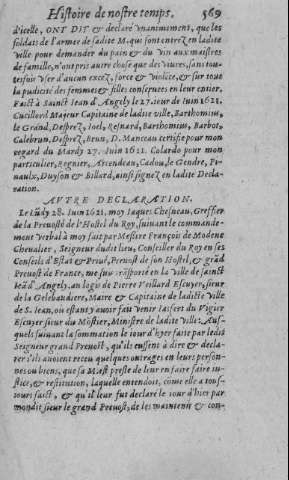 Histoire de nostre temps. 569
d'icelle, ONT DIT & declaré vnanimiment, que les
soldats de l'armee de ladite M. qui sont entrez en ladite
ville pour demander du pain & du vin aux maistres
de famille, n'ont pris autre chose que des viures, sans tou-
tesfois vser d'aucun excez, force & violéce, & sur tout
la pudicité des femmes & filles conseruees en leur entier,
Faict à Sainct Iean d'Angely le 27. iour de Iuin 1621.
Cuillord Majeur Capitaine de ladite ville, Barthomius,
le Grand, Desprez, Ioel, Resnard, Barthomius, Barbot,
Galebrun, Desprez, Brun, D. Manceau certifie pour mon
regard du Mardy 27. Iuin 1621. Colardo pour mon
particulier, Regnier, Assendeau, Cadou, le Gendre, Pi-
naulx, Duyson & Billard, ainsi signez en ladite Decla-
ration.
AVTRE DECLARATION.
Le Lúdy 28. Iuin 1621. moy Iaques Chesneau, Greffier
de la Preuosté de l'Hostel du Roy, suiuant le commande-
ment verbal à moy fait par Messire François de Modene
Cheualier, Seigneur dudit lieu, Conseiller du Roy en ses
Conseils d'Estat & Priué, Preuost de son Hostel, & grád
Preuost de France, me suis trásporté en la ville de sainct
Ieá d'Angely, au logis de Pierre Veillard Escuyer, sieur
de la Gelebaudiere, Maire & Capitaine de ladicte ville
de S. Iean, ou estant y auoit fait venir Iaspert du Vigier
Escuyer sieur du Móstier, Ministre de ladite ville, Aus-
quels suiuant la sommation le iour d'hyer faite par ledit
Seigneur grand Preuost, qu'ils eussent à dire & decla-
rer s'ils auoient receu quelques outrages en leurs person-
nes ou biens, que sa M. est preste de leur en faire faire iu-
stice, & restitution, laquelle entendoit, come elle a tous-
iours faict, & qu'il leur fut declaré le iour d'hier par
mondit sieur le grand Preuost, de les maintenir & con-